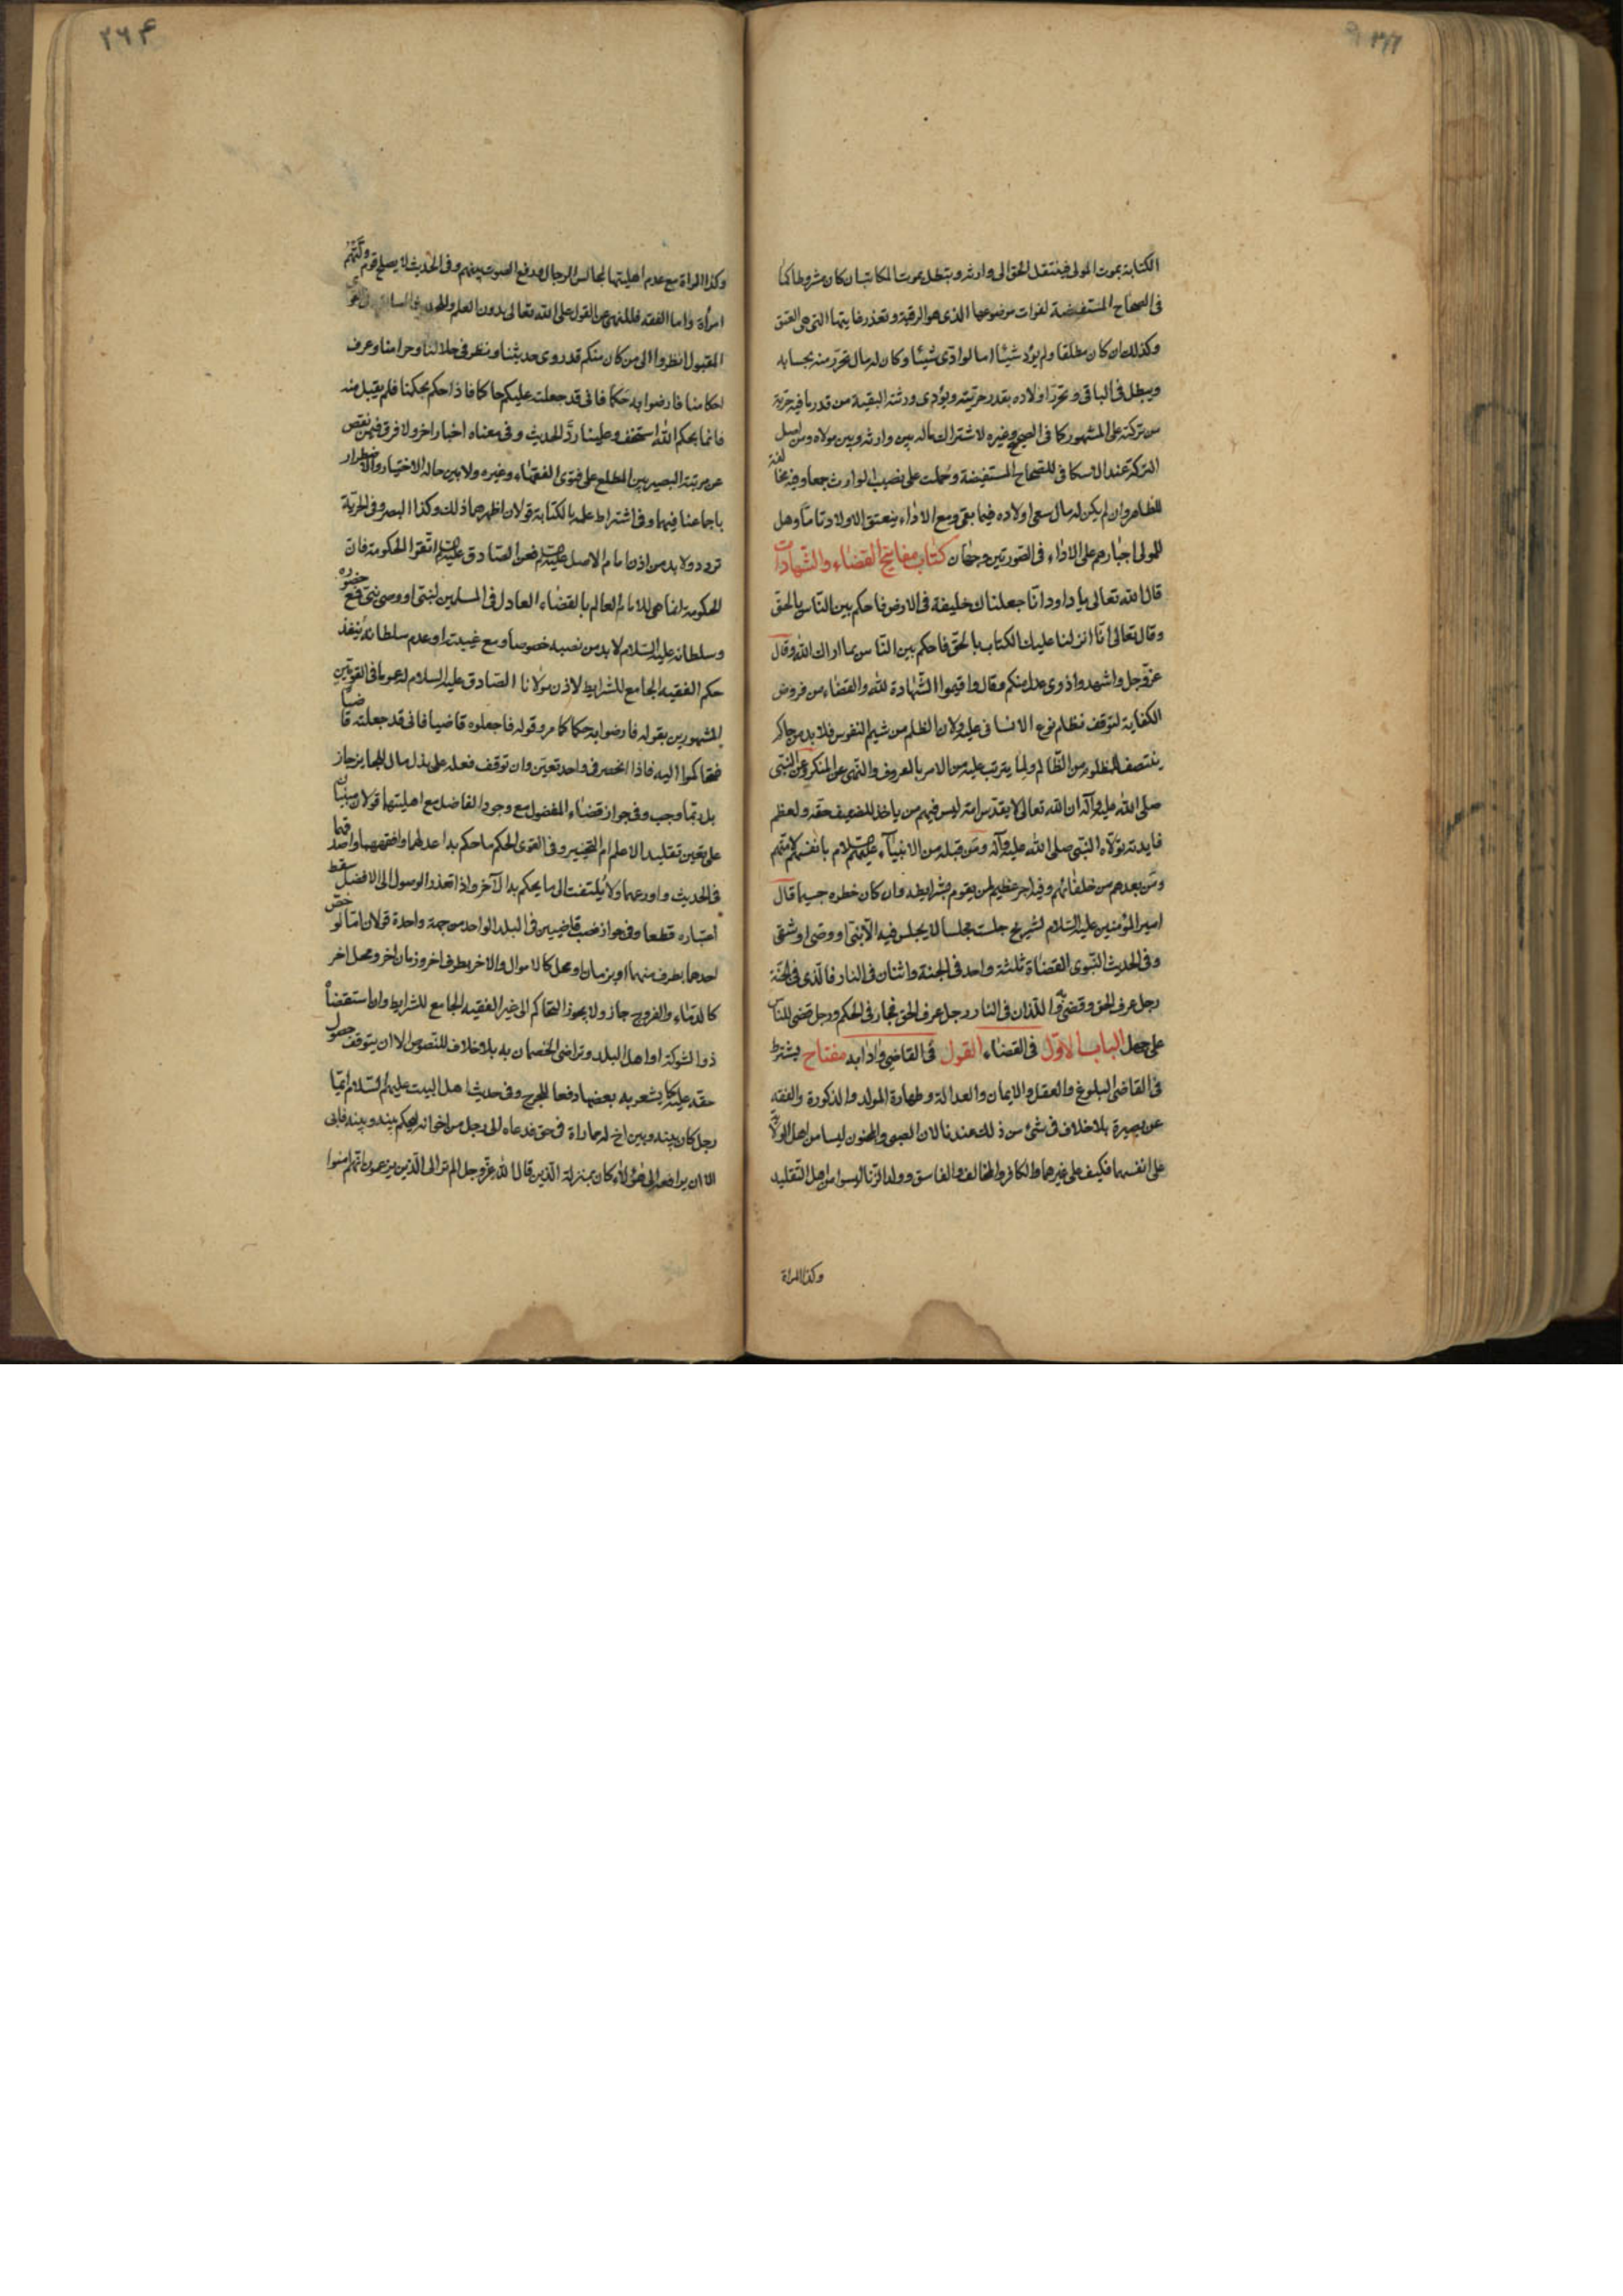 الكتابة بموت المولى فينتقل الحق الى وارثه وتبطل بموت المكاتب ان كان مشروطا كما
فى الصحاح المستفيضة لفوات موضوعها الذى هو الرقبة وتعذر غايتها التى هى العتق
وكذلك ان كان مطلقا ولم يؤد شيئا اما لو ادّى شيئا وكان له مال تحرّر منه بحسابه
ويبطل فى الباقى وتحرّر اولاده بقدر حريته ويؤدى ورثته البقية من قدر ما فيه حرية
من تركته على المشهور كما فى الصحيح وغيره لاشتراك ماله بين وارثه وبين مولاه ومن اصل
التركة عند الاسكافى للصحاح المستفيضة وحملت على نصيب الوارث جمعا وفيه مخالفة
للظاهر وان لم يكن له مال سعى اولاده فيما بقى ومع الاداء ينعتق الاولاد تامّا وهل
للمولى اجبارهم على الاداء فى الصورتين وجهان كتاب مفاتيح القضاء والشّهادات
قال الله تعالى يا داود انّا جعلناك خليفة فى الارض فاحكم بين النّاس بالحقّ
وقال تعالى انّا انزلنا عليك الكتاب بالحقّ فاحكم بين النّاس بما اراك الله وقال
عزّ وجل واشهدوا ذوى عدل منكم وقال واقيموا الشّهادة لله والقضاء من فروض
الكفاية لتوقف نظام نوع الانسانى عليه ولان الظلم من شيم النفوس فلا بد من حاكم
ينتصف المظلوم من الظّالم ولما يترتب عليه من الامر بالمعروف والنّهى عن المنكر وعن النّبىّ
صلى الله عليه وآله ان الله تعالى لا يقدّس امة ليس فيهم من ياخذ للضعيف حقه ولعظم
فايدته تولّاه النّبى صلى الله عليه وآله ومن قبله من الانبيآء عليهم السلام بانفسهم لامتهم
ومن بعدهم من خلفائهم وفيه اجر عظيم لمن يقوم بشرايطه وان كان خطره جسيما قال
امير المؤمنين عليه السّلام لشريح جلست مجلسا لا يجلس فيه الّا نبىّ او وصىّ او شقى
وفى الحديث النّبوى القضاة ثلثة واحد فى الجنة واثنان فى النار فالّذى فى الجنّة
رجل عرف الحق وقضى به واللّذان فى النار رجل عرف الحق فجار فى الحكم ورجل قضى للنّاس
على جهل الباب الاوّل فى القضاء القول فى القاضى وادابه مفتاح يشترط
فى القاضى البلوغ والعقل والايمان والعدالة وطهارة المولد والذكورة والفقه
عن بصيرة بلا خلاف فى شئ من ذلك عندنا لان الصبى والمجنون ليسا من اهل الولاية
على انفسهما فكيف على غيرهما والكافر والمخالف والفاسق وولد الزّنا ليسوا من اهل التقليد
وكذا المراة
وكذا المراة مع عدم اهليتها لمجالس الرجال ورفع الصوت بينهم وفى الحديث لا يصلح قوم وليتهم
امرأة واما الفقه فللنهى عن القول على الله تعالى بدون العلم
المقبول انظروا الى من كان منكم قد روى حديثنا ونظر فى حلالنا وحرامنا وعرف
احكامنا فارضوا به حكما فانى قد جعلته عليكم حاكما فاذا حكم بحكمنا فلم يقبل منه
فانما بحكم الله استخف وعلينا ردّ الحديث وفى معناه اخبار اخر ولا فرق فيمن نقص
عن مرتبته البصير بين المطلع على فتوى الفقهاء وغيره ولا بين حالة الاختيار والاضطرار
باجماعنا فيهما وفى اشتراط علمه بالكتابة قولان اظهرهما ذلك وكذا البصر وفى الحرية
تردد ولا بد من اذن امام الاصل عليه السلام فعن الصّادق عليه السلام اتّقوا الحكومة فان
الحكومة انما هى للامام العالم بالقضاء العادل فى المسلمين لنبىّ او وصى نبىّ فمع حضوره
وسلطانه عليه السّلام لا بد من نصبه خصوصا ومع غيبته او عدم سلطانه ينفذ
حكم الفقيه الجامع للشرايط لاذن مولانا الصّادق عليه السلام له عموما فى القويّين
المشهورين بقوله فارضوا به حكما كما مر وقوله فاجعلوه قاضيا فانى قد جعلته قاضيا
فتحاكموا اليه فاذا انحصر فى واحد تعيّن وان توقف فعله على بذل مال للجاير جاز
بل ربّما وجب وفى جواز قضاء المفضول مع وجود الفاضل مع اهليتهما قولان مبنيان
على تعين تقليد الاعلم ام التخيير وفى القوى الحكم ما حكم به اعدلهما وافقههما واصدقهما
فى الحديث واورعهما ولا يلتفت الى ما يحكم به الآخر واذا تعذر الوصول الى الافضل سقط
اعتباره قطعا وفى جواز نصب قاضيين فى البلد الواحد من جهة واحدة قولان امّا لو خصّ
احدهما بطرف منهما او بزمان او محل كالاموال والاخر بطرف اخر وزمان اخر ومحل اخر
كالدماء والفروج جاز ولا يجوز التحاكم الى غير الفقيه الجامع للشرايط وان استقضاه
ذو الشوكة او اهل البلد وتراضى الخصمان به بلا خلاف للنصوص الا ان يتوقف حصول
حقه عليه كما يشعر به بعضها دفعا للحرج وفى حديث اهل البيت عليهم السّلام ايّما
رجل كان بينه وبين اخ له مماراة فى حق فدعاه الى رجل من اخوانه ليحكم بينه وبينه فابى
الا ان يرافعه الى هؤلاء كان بمنزلة الّذين قال الله عزّ وجل الم تر الى الّذين يزعمون انّهم امنوا